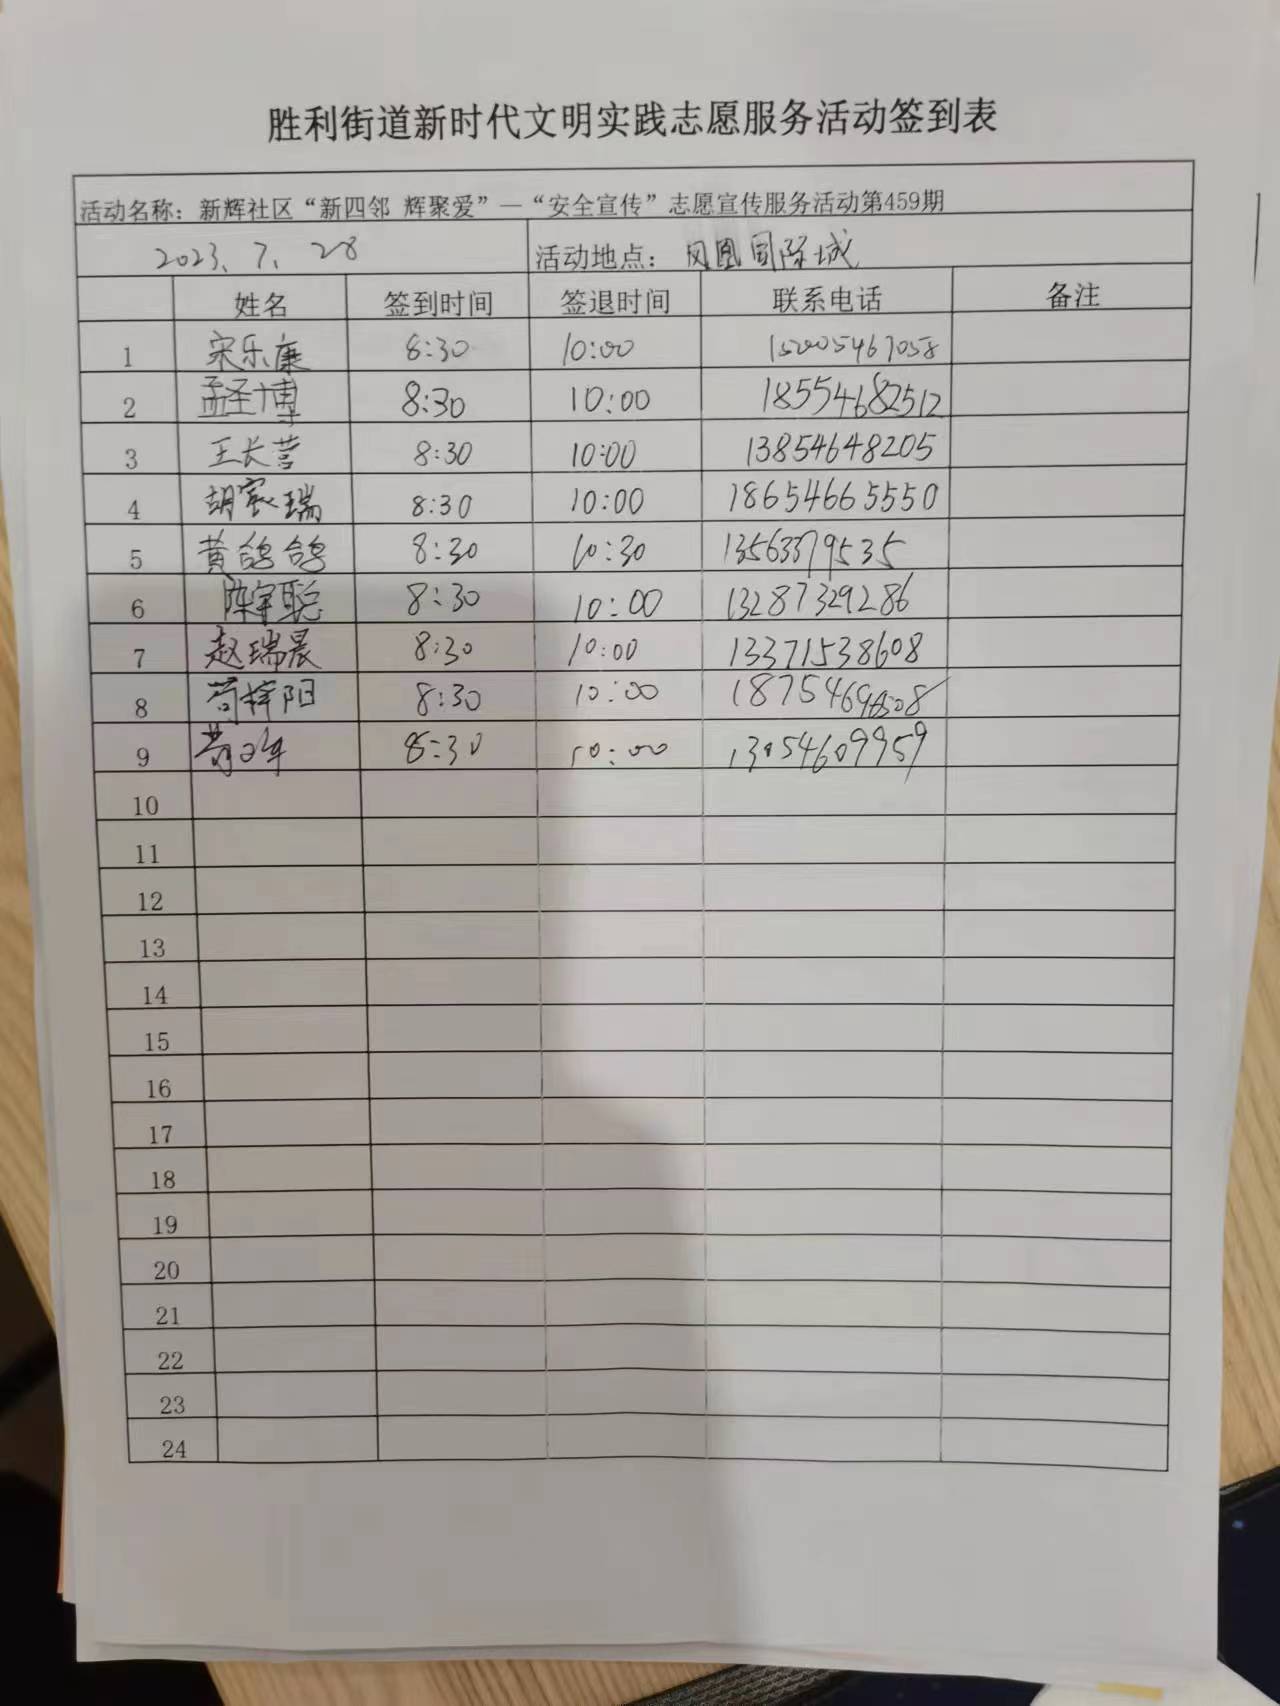 胜利街道新时代文明实践志愿服务活动签到表
活动名称：新辉社区“新四邻 辉聚爱”—“安全宣传”志愿宣传服务活动第459期
2023、7、28 活动地点：凤凰国际城
姓名 签到时间 签退时间 联系电话 备注
1 宋乐康 8:30 10:00 15005467058
2 孟圣博 8:30 10:00 18554682512
3 王长营 8:30 10:00 13854648205
4 胡宸瑞 8:30 10:00 18654665550
5 黄鸽鸽 8:30 10:30 13563379535
6 陈宇聪 8:30 10:00 13287329286
7 赵瑞晨 8:30 10:00 13371538608
8 苟梓阳 8:30 10:00
9 8:30 10:00 13054609959
10
11
12
13
14
15
16
17
18
19
20
21
22
23
24